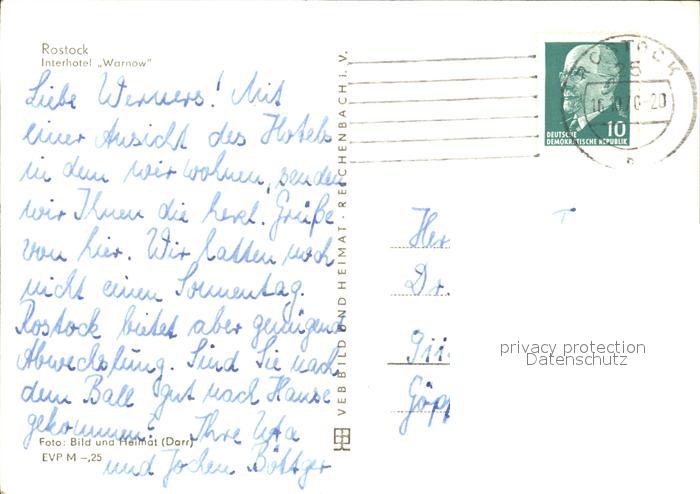 Rostock
Interhotel „Warnow"
Liebe Werners! Mit
einer Ansicht des Hotels
in dem wir wohnen, senden
wir Ihnen die herzl. Grüße
von hier. Wir hatten noch
nicht einen Sonnentag.
Rostock bietet aber genügend
Abwechslung. Sind Sie nach
dem Ball gut nach Hause
gekommen? Ihre Uta
und Jochen Böttger
Foto: Bild und Heimat (Darr)
EVP M –,25
VEB BILD UND HEIMAT · REICHENBACH i. V.
ROSTOCK
25
DEUTSCHE
DEMOKRATISCHE REPUBLIK
10
Her
Dr.
Göpp
privacy protection
Datenschutz